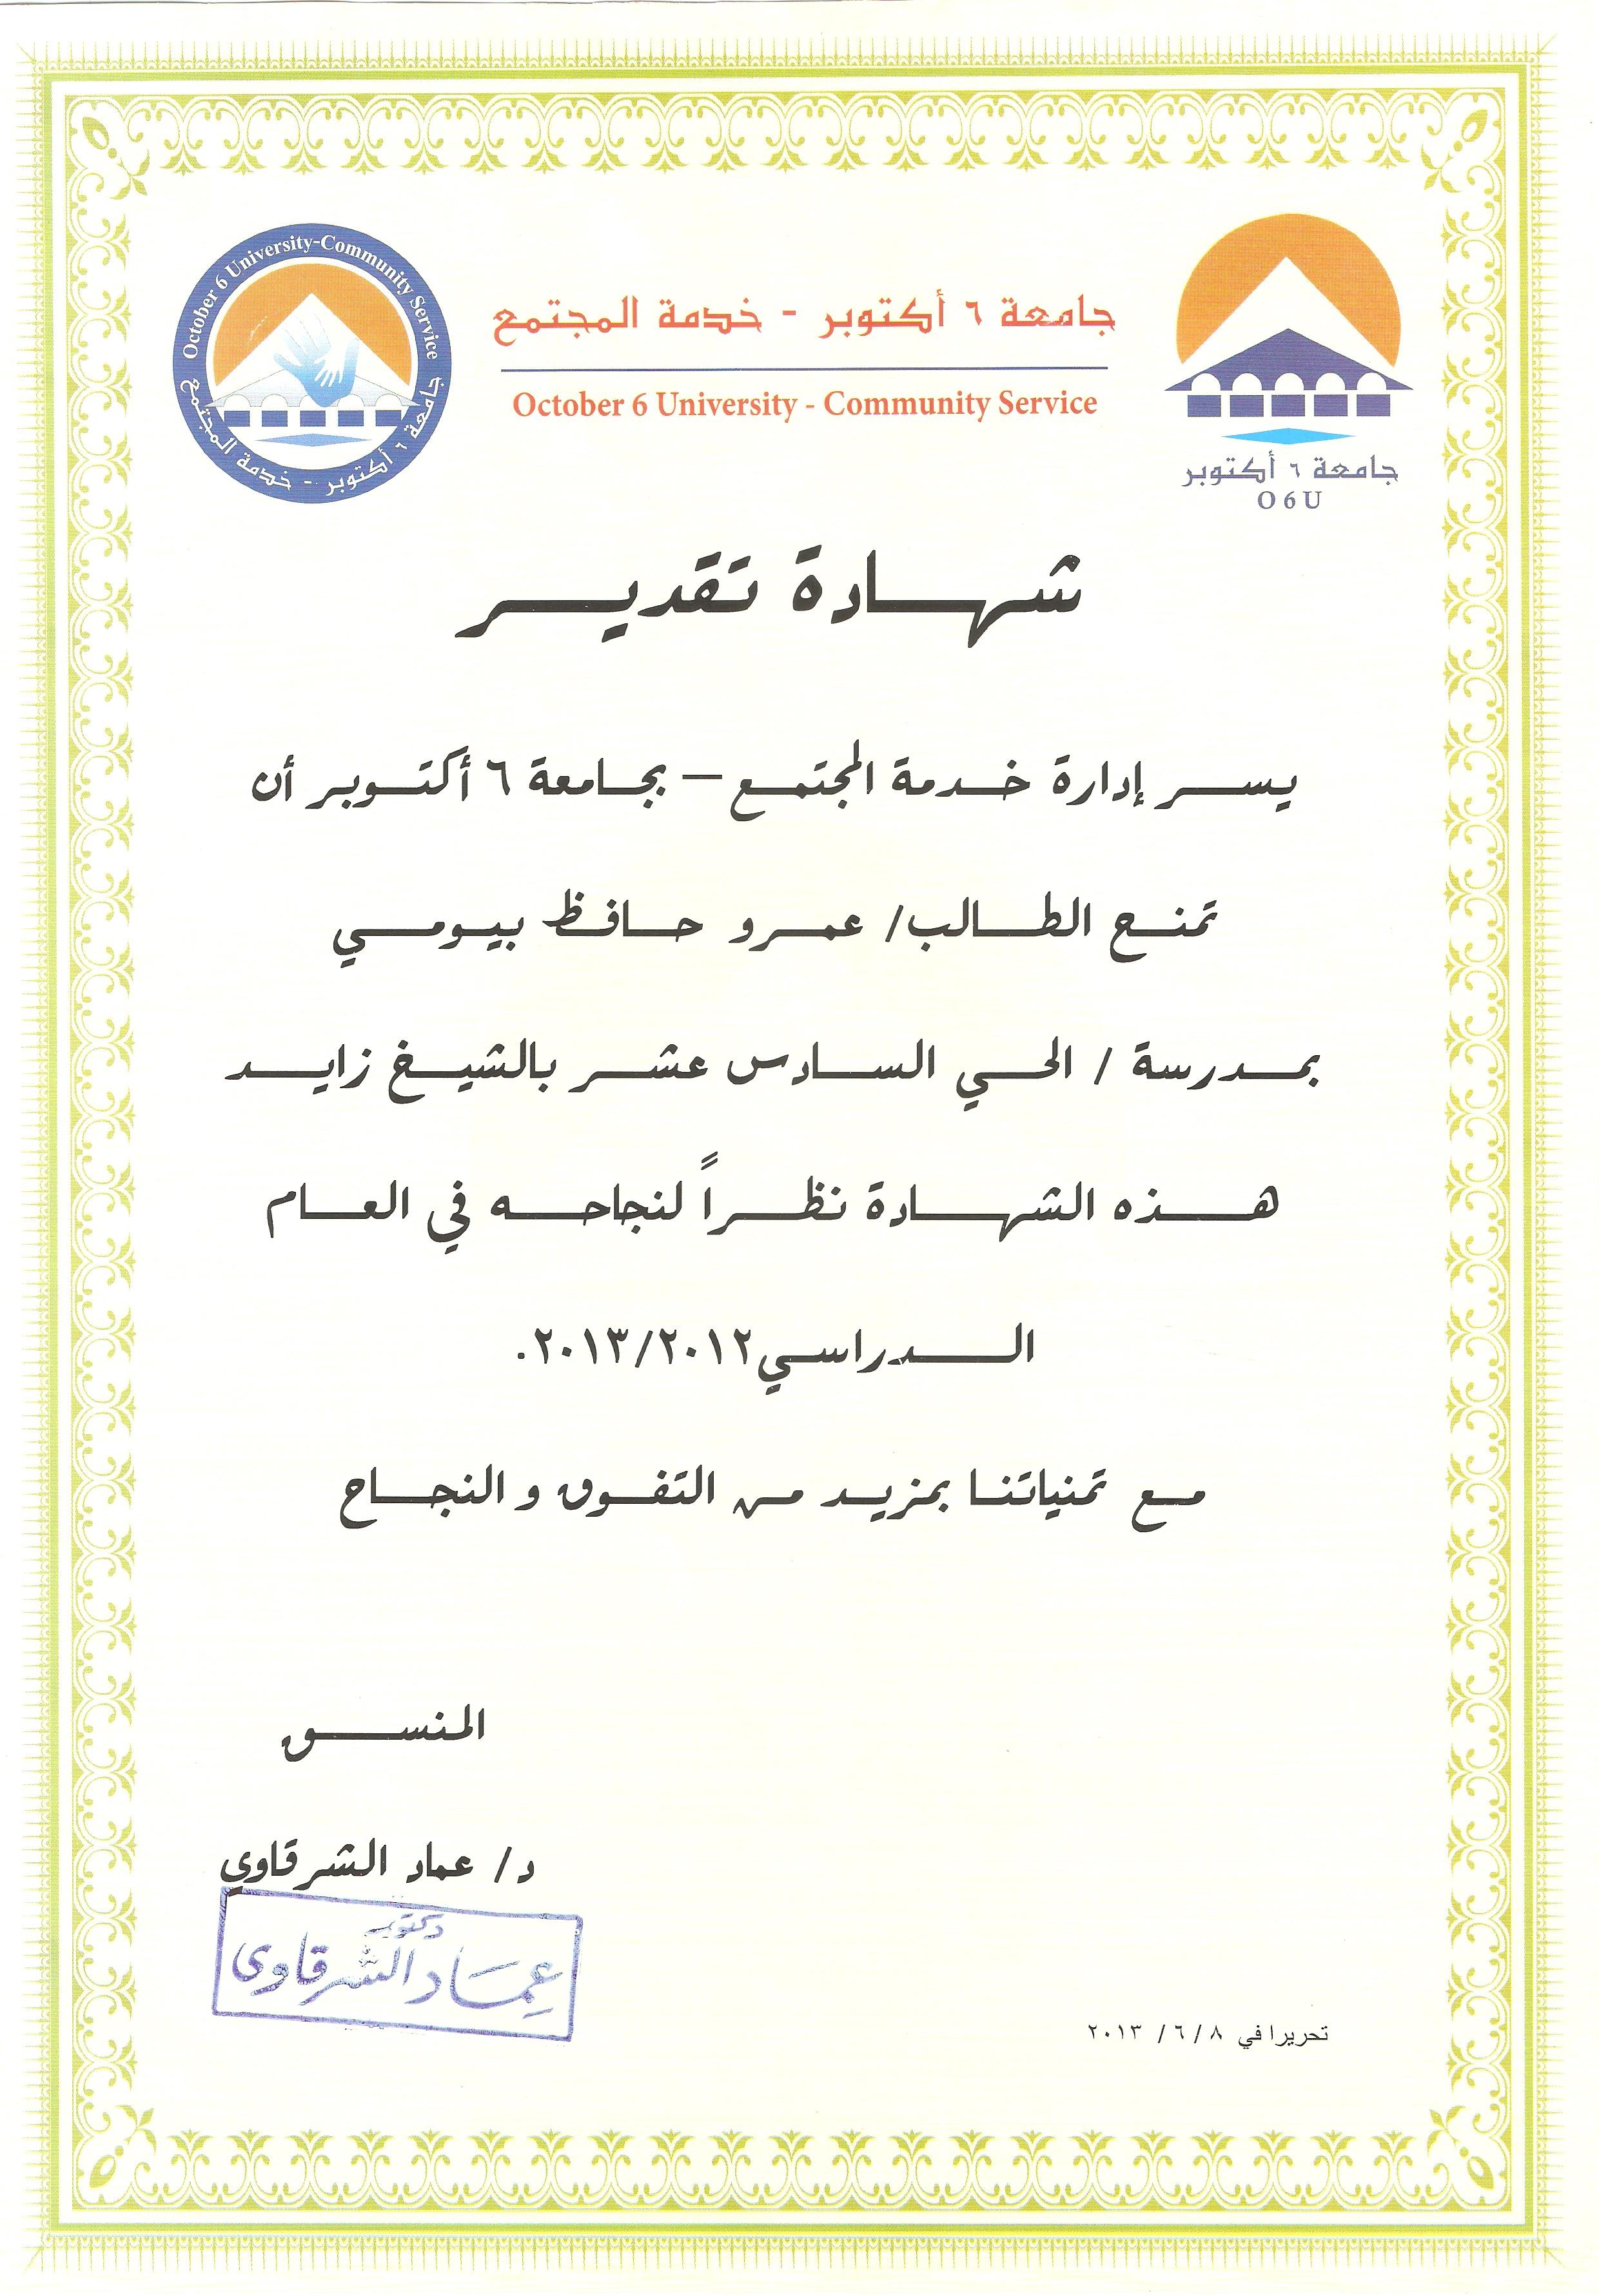 October 6 University-Community Service
جامعة ٦ أكتوبر - خدمة المجتمع
جامعة ٦ أكتوبر - خدمة المجتمع
October 6 University - Community Service
جامعة ٦ أكتوبر
O6U
شهادة تقدير
يسر إدارة خدمة المجتمع – بجامعة ٦ أكتوبر أن
تمنح الطالب/ عمرو حافظ بيومي
بمدرسة / الحي السادس عشر بالشيخ زايد
هذه الشهادة نظراً لنجاحه في العام
الدراسي٢٠١٣/٢٠١٢.
مع تمنياتنا بمزيد من التفوق و النجاح
المنسق
د/ عماد الشرقاوي
دكتور
عماد الشرقاوى
تحريرا في ٨ / ٦ / ٢٠١٣